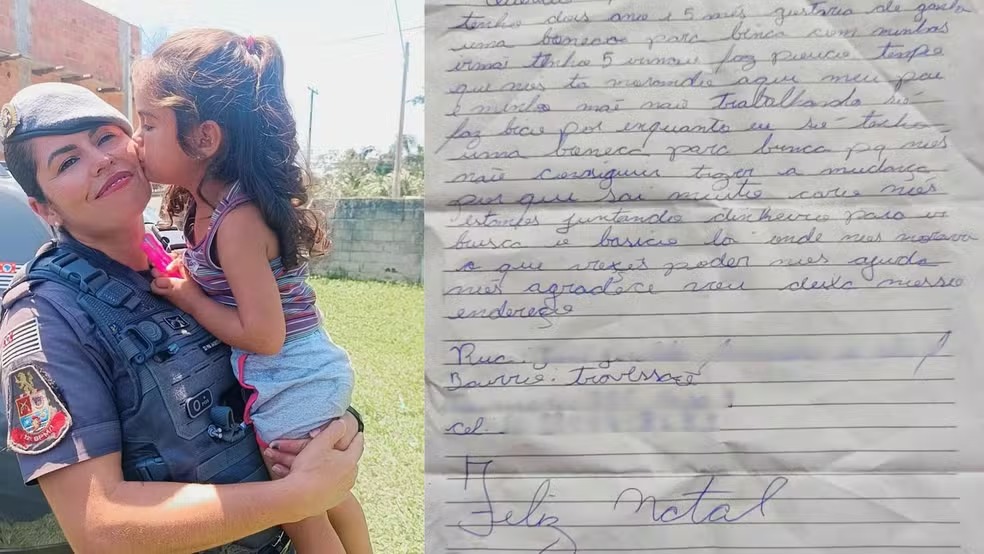 tenho dois ano e 5 mês gustaria de ganha
uma boneca para binca com minhas
irmã tenho 5 irmãos faz pouco tempo
que nois ta morando aqui meu pai
e minha mãe não trabalhando só
faz bico por enquanto eu só tenho
uma boneca para binca pq nois
não consiguiu trazer a mudança
por que sai muito caro nois
estamos juntando dinheiro para ir
busca o basico la onde nois morava
o que voxes poder nois ajuda
nois agradece vou deixa nosso
endereço
Rua
Bairro: travessão
cel
Feliz Natal